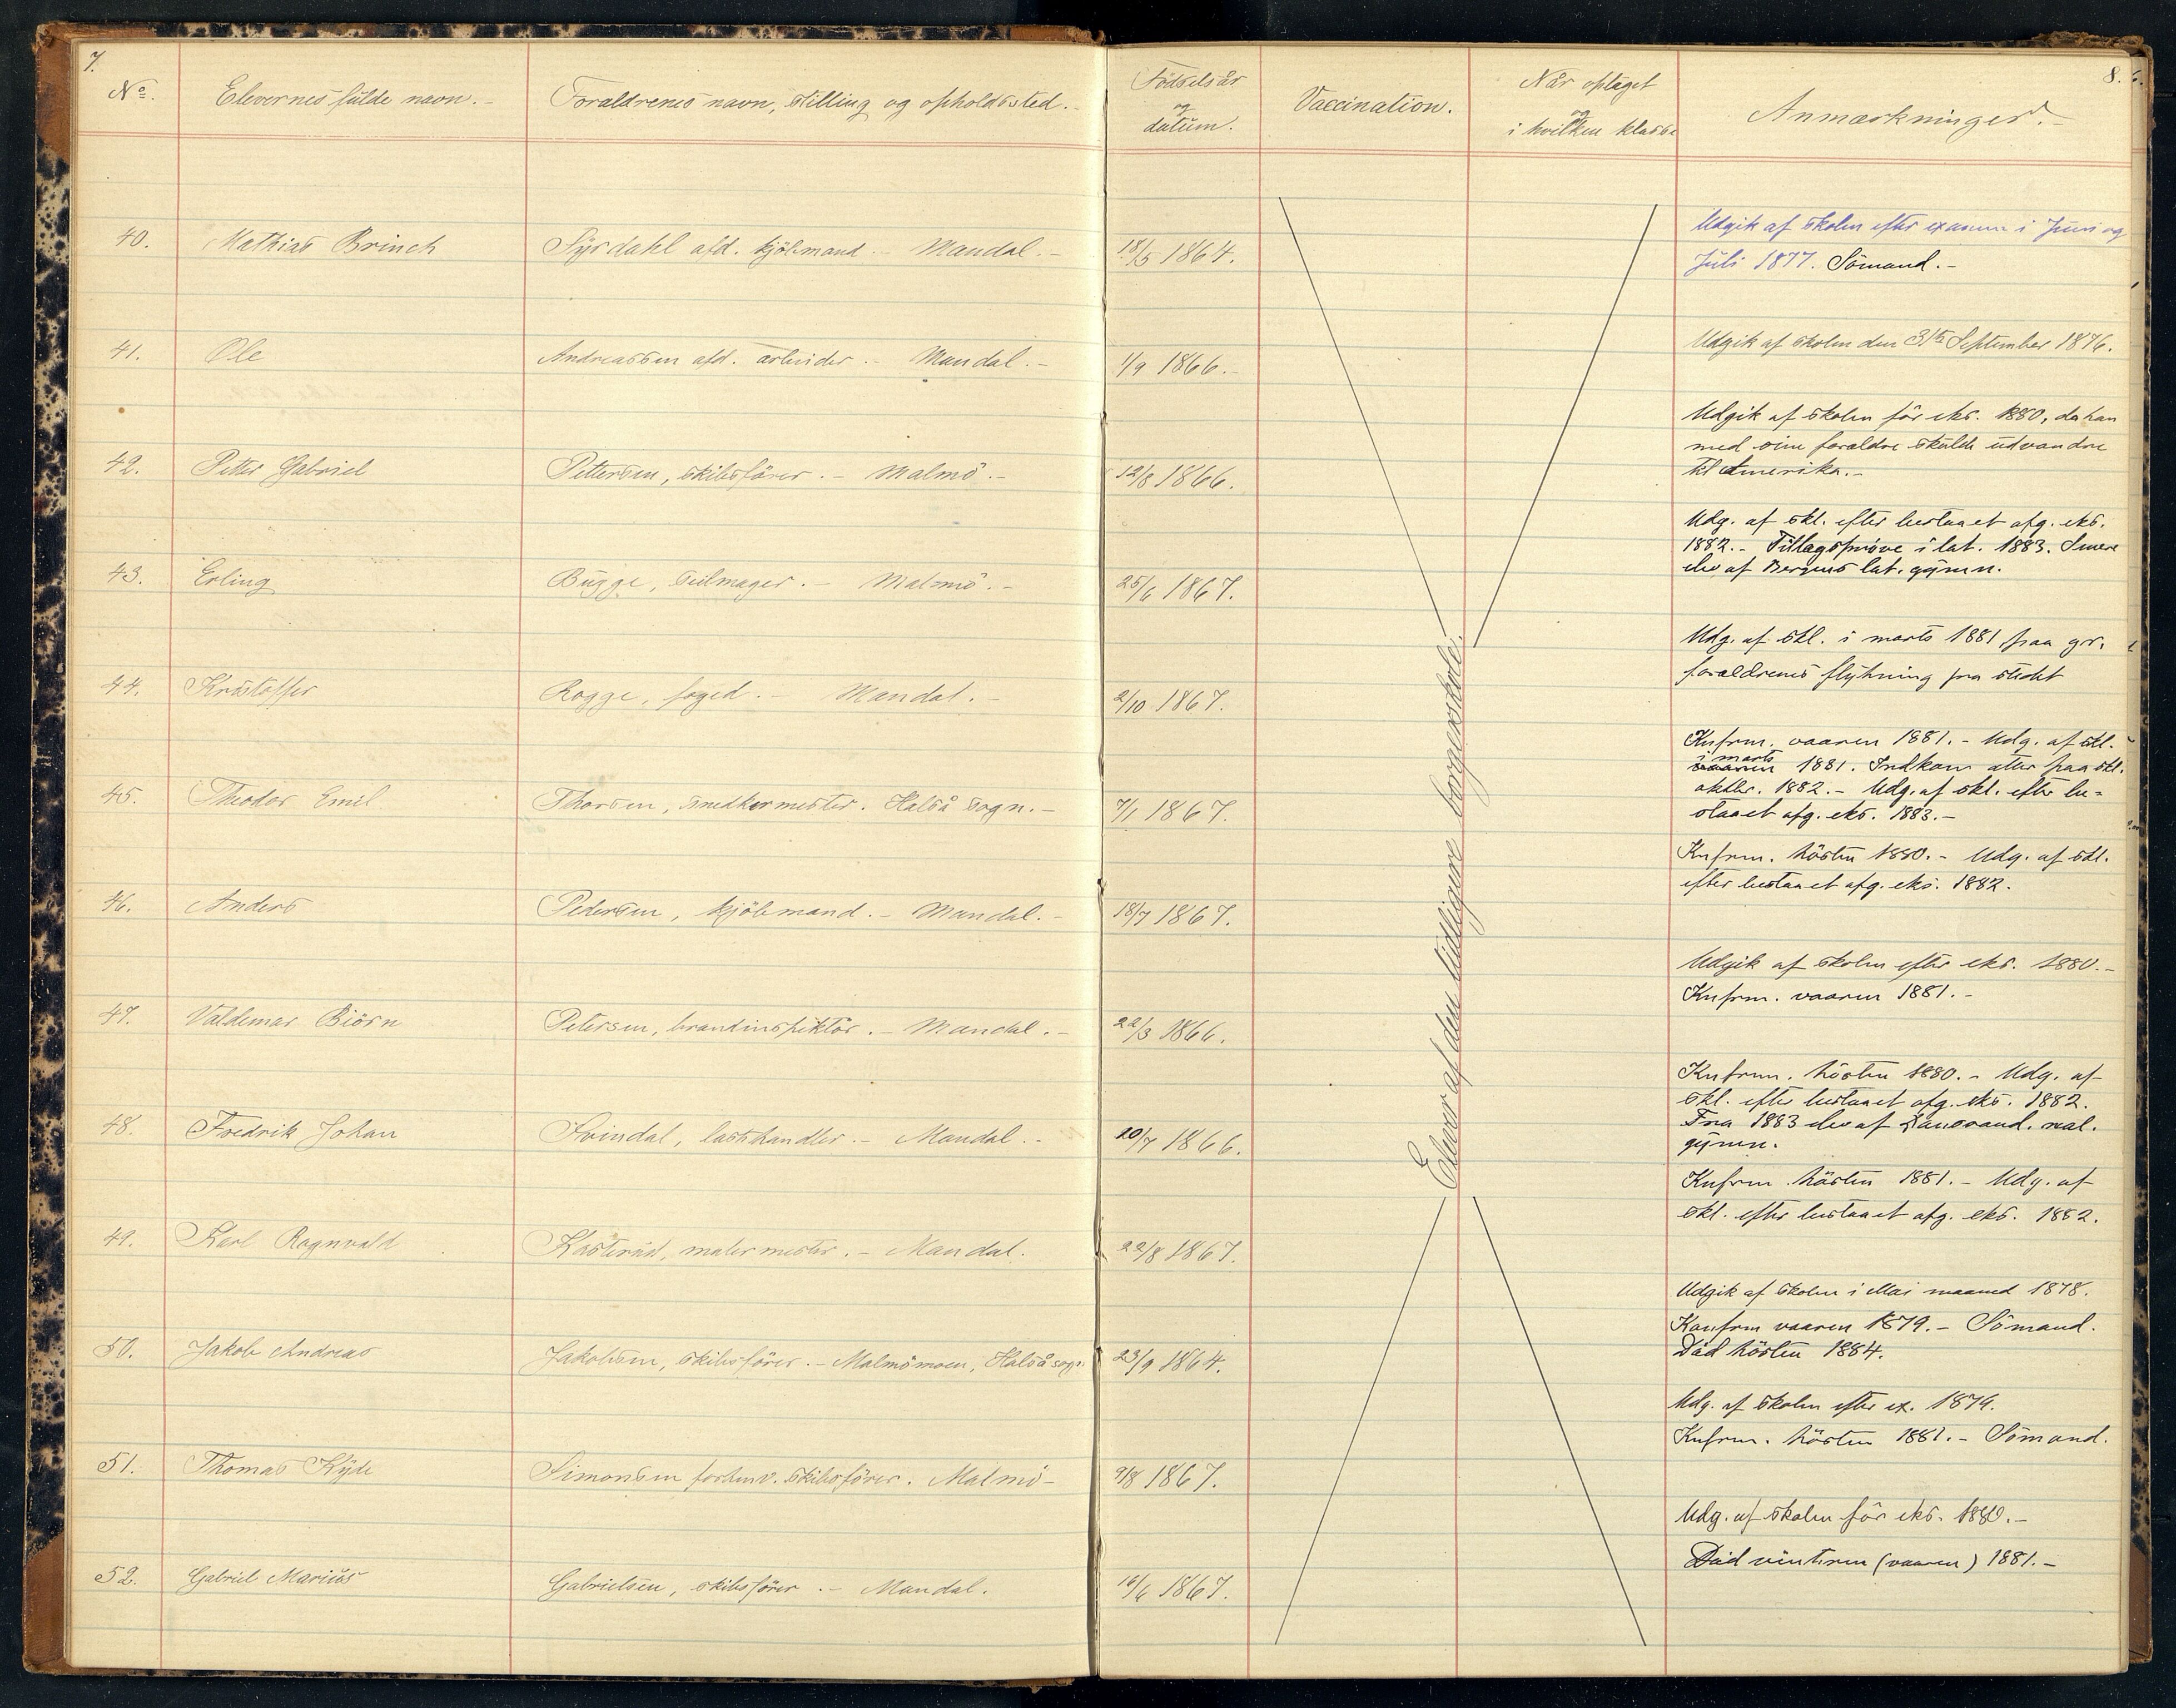 7.
8.
No. Elevernes fulde navn. - Forældrenes navn, stilling og opholdssted. - Födselsår og datum. Vaccination. Når optaget og i hvilken klasse Anmærkninger. -
40. Mathias Brinch Syrdahl afd. kjöbmand. - Mandal. - 18/5 1864.
Udgik af skolen efter examen i Juni og
Juli 1877. Sömand. -
41. Ole Andreassen afd. arbeider. - Mandal. - 1/9 1866. -
Udgik af skolen den 31te September 1876.
42. Petter Gabriel Pettersen, skibsförer. - Malmö. - 12/8 1866.
Udgik af skolen för eks. 1880, da han
med sine foraldre skulde udvandre
til Amerika. -
43. Erling Bugge, seilmager. - Malmö. - 25/6 1867.
Udg. af skl. efter bestaaet afg. eks.
1882. - Tillægspröve i lat. 1883. Senere
elev af Bergens lat. gymn.
44. Kristoffer Rogge, foged. - Mandal. - 2/10 1867.
Udg. af skl. i marts 1881 paa gr.
foraldrenes flytning fra stedet
45. Theodor Emil Thorsen, snedkermester. Halså sogn. - 7/1 1867.
Knfrm. vaaren 1881. - Udg. af skl.
i marts
1881. Indkom atter paa skl.
oktbr. 1882. - Udg. af skl. efter be-
staaet afg. eks. 1883. -
46. Anders Pedersen, kjöbmand. - Mandal. - 18/7 1867.
Knfrm. hösten 1880. - Udg. af skl.
efter bestaaet afg. eks. 1882.
47. Valdemar Biörn Petersen, brandinspektör. - Mandal. - 22/3 1866.
Udgik af skolen efter eks. 1880. -
Knfrm. vaaren 1881. -
48. Fredrik Johan Svindal, lasthandler. - Mandal. - 20/7 1866.
Knfrm. hösten 1880. - Udg. af
skl. efter bestaaet afg. eks. 1882.
Fra 1883 elev af Kanssand. real.
gymn.
49. Karl Ragnvald Kasterud, malermester. - Mandal. 22/8 1867.
Knfrm. hösten 1881. - Udg. af
skl. efter bestaaet afg. eks. 1882.
50. Jakob Andreas Jakobsen, skibsförer. - Malmömoen, Halså sogn 23/9 1864.
Udgik af skolen i Mai maaned 1878.
Konfrm vaaren 1879. - Sömand.
Död hösten 1884.
51. Thomas Kyde Simonsen forhenv. skibsförer. Malmö - 9/8 1867.
Udg. af skolen efter ex. 1879.
Knfrm. hösten 1881. - Sömand.
52. Gabriel Marius Gabrielsen, skibsförer. - Mandal. 16/6 1867.
Udg. af skolen för eks. 1880. -
Död vinteren (vaaren) 1881. -
Elever af den tidligere borgerskole.